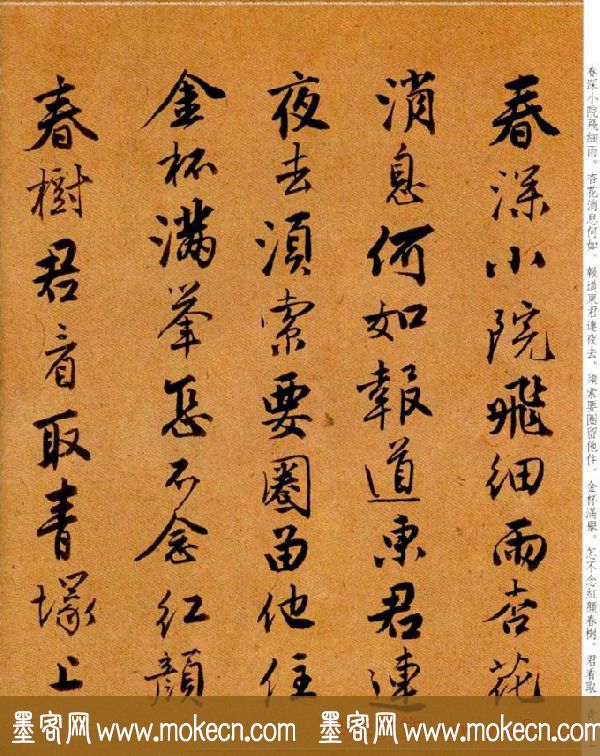 春深小院飛細雨杏花
消息何如報道東君連
夜去須索要圈留他住
金杯滿舉怎不念紅顏
春樹君看取青塚上
春深小院飛細雨。杏花消息何如。報道東君連夜去。須索要圈留他住。金杯滿舉。怎不念紅顏春樹。君看取
墨客网 www.mokecn.com 墨客网 www.mokecn.com 墨客网 www.mokecn.com